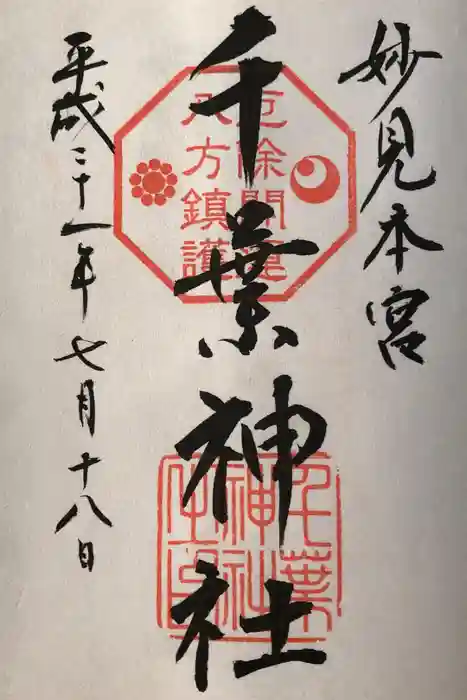 妙見本宮
千葉神社
厄除開運
八方鎮護
千葉
神社
之印
平成二十一年七月十八日